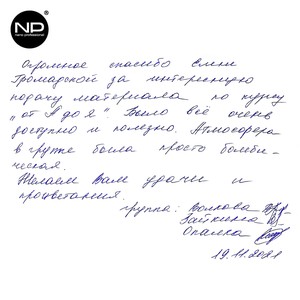 NP
nano professional
Огромное спасибо Елене
Громадской за интересную
подачу материала по курсу
"от А до Я". Было всё очень
доступно и полезно. Атмосфера
в группе была просто бомби-
ческая.
Желаем Вам удачи и
процветания.
группа: Волкова
Зайкина
Опалка
19.11.2021